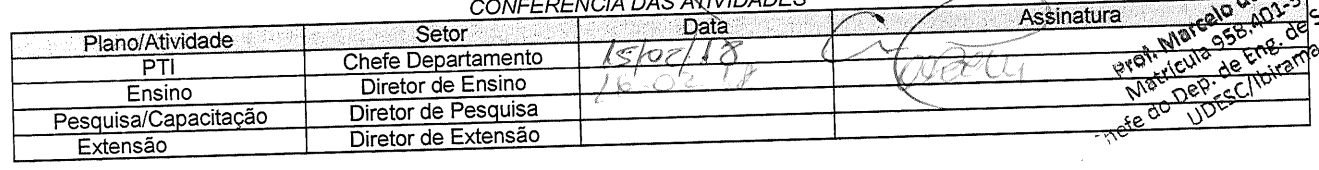 CONFERÊNCIA DAS ATIVIDADES
Plano/Atividade Setor Data Assinatura
PTI Chefe Departamento 15/02/18
Ensino Diretor de Ensino 16.02.18
Pesquisa/Capacitação Diretor de Pesquisa
Extensão Diretor de Extensão
Prof. Marcelo
Matrícula 958.401-
Chefe do Dep. de Eng. de S
UDESC/Ibirama